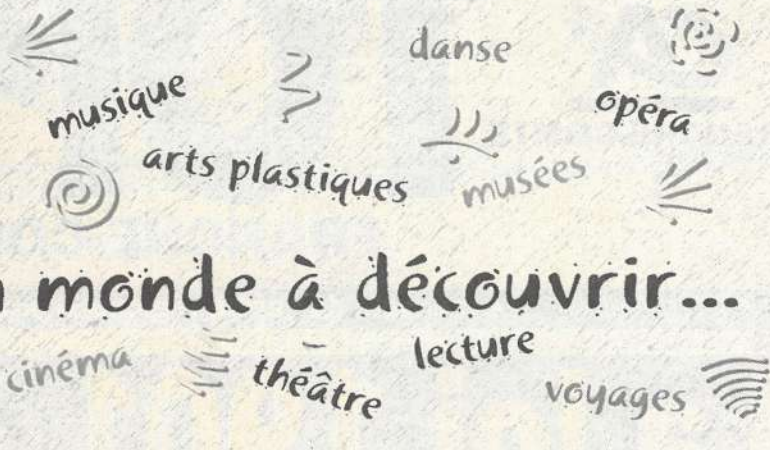 danse
musique
opéra
arts plastiques
musées
monde à découvrir...
cinéma
lecture
théâtre
voyages